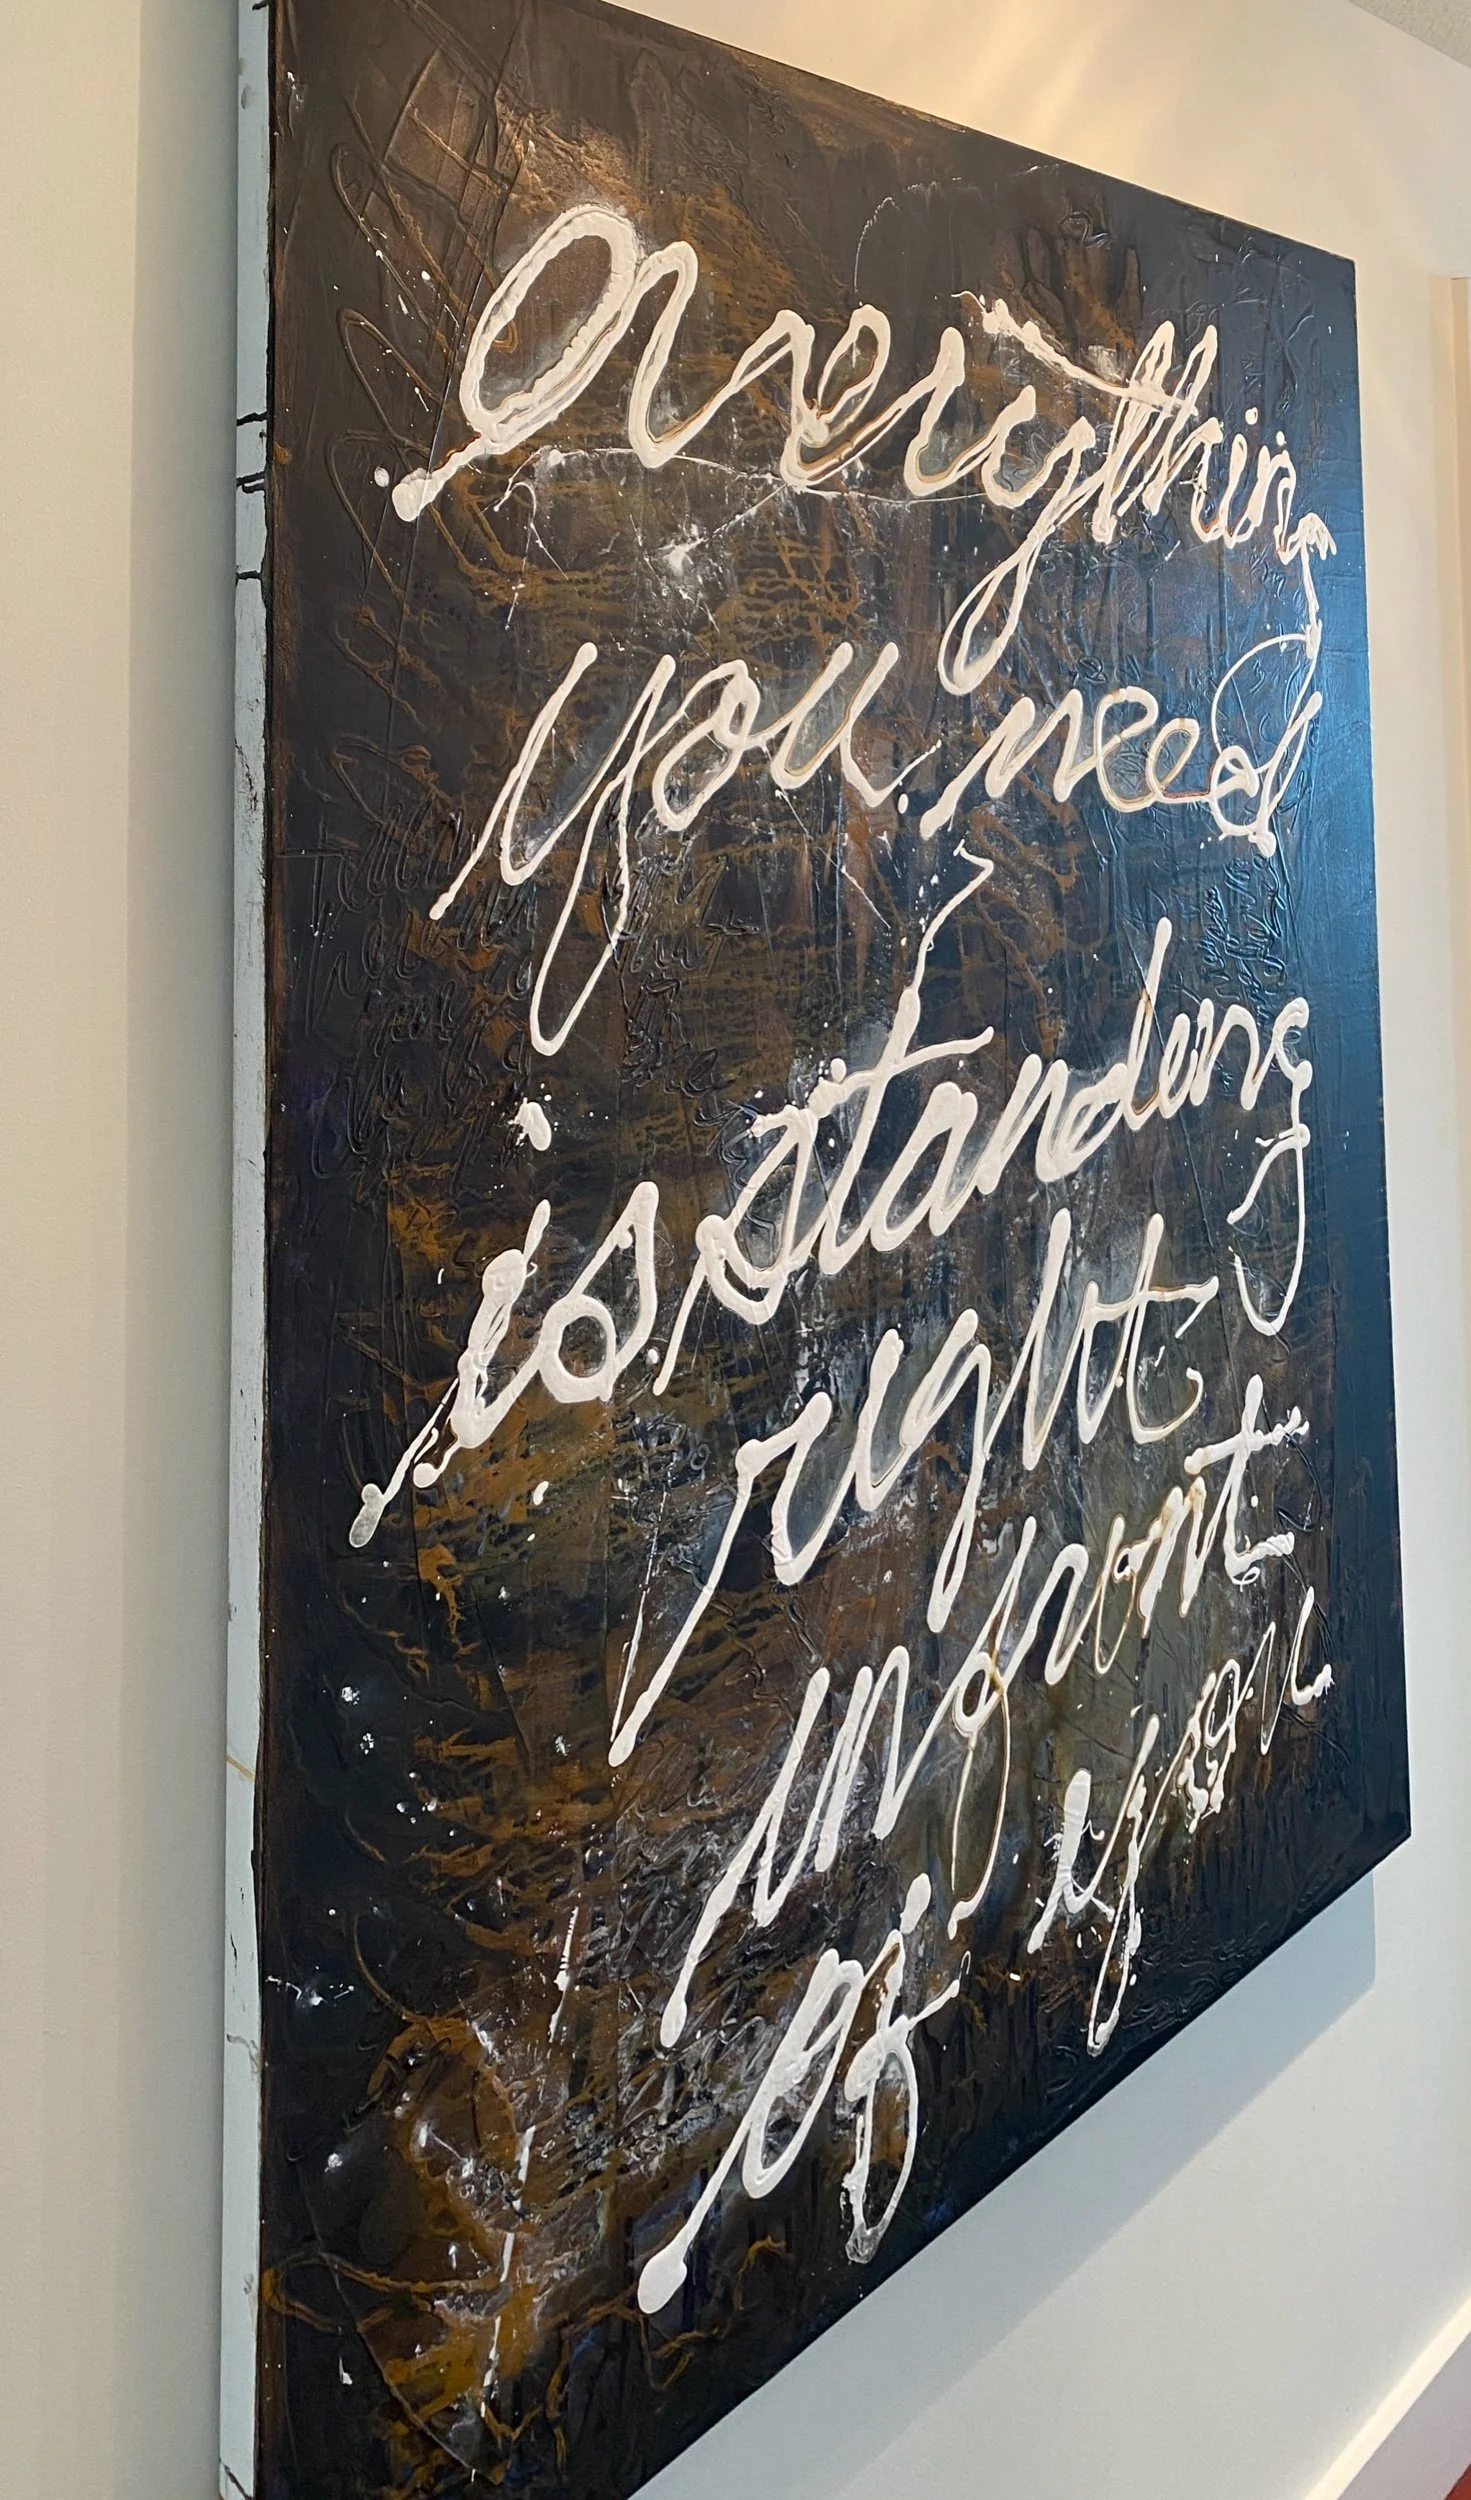 everything
you need
is standing
right
in front
of you